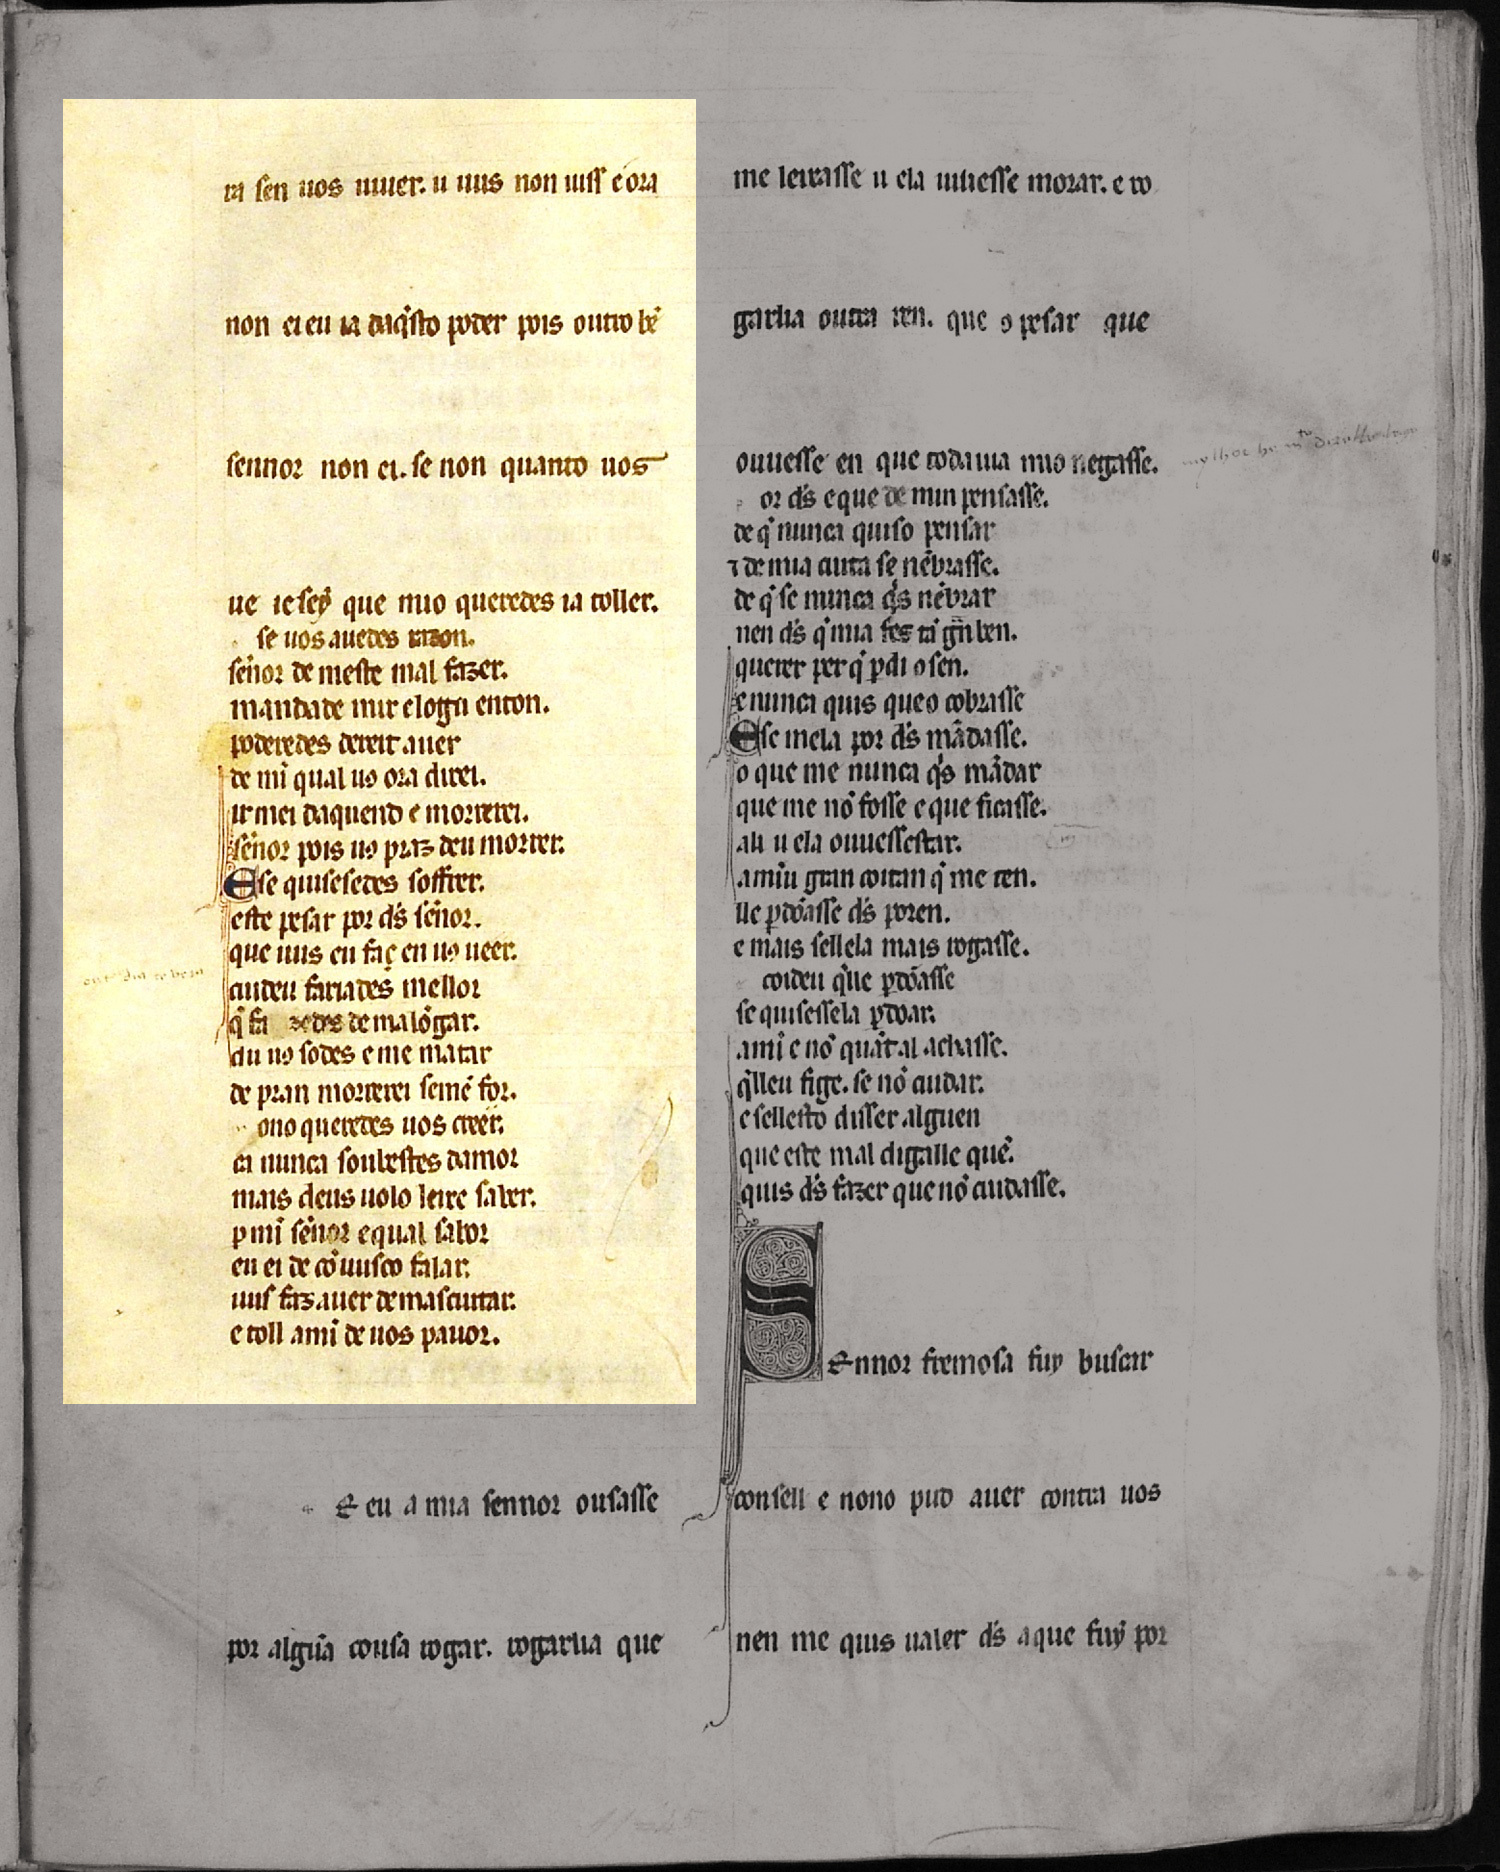 ta sen uos uiuer. u uus non uiss e ora
non ei eu ia daq̃sto poder pois outro bẽ
sennor non ei. se non quanto uos
ue ie sey que mio queredes ia toller.
se uos auedes razon.
sẽnor de meste mal fazer.
mandade mir e logu enton.
poderedes dereit auer
de mĩ qual uꝯ ora direi.
ir mei daquend e morrerei.
sẽnor pois uꝯ praz deu morrer.
E se quisesedes soffrer.
este pesar por dẽs sẽnor.
que uus eu faç en uꝯ ueer.
cuideu fariades mellor
q̃ fa zedes de malõgar.
du uꝯ sodes e me matar
de pran morrerei semẽ for.
ono queredes uos creer.
ca nunca soubestes damor
mais deus uolo leixe saber.
p mĩ sẽnor e qual sabor
eu ei de cõuusco falar.
uus faz auer de mascuitar.
e toll ami de uos pauor.
E eu a mia sennor ousasse
por algũa cousa rogar. rogarlia que
me leixasse u ela uiuesse morar. e ro
garlia outra ren. que o pesar que
ouuesse en que todauia mio negasse.
or dẽs e que de min pensasse.
de q̃ nunca quiso pensar
⁊ de mia cuita se nẽbrasse.
de q̃ se nunca q̃s nẽbrar
nen dẽs q̃ mia fez tã grã ben.
querer per q̃ pdi o sen.
e nunca quis que o cobrasse
E se mela por dẽs mãdasse.
o que me nunca q̃s mãdar
que me nõ fosse e que ficasse.
ali u ela ouuessestar.
amiu gran coitan q̃ me ten.
lle pdõasse dẽs poren.
e mais sellela mais rogasse.
coideu q̃lle pdõasse
se quisessela pdoar.
ami e nõ quãtal achasse.
q̃lleu fige. se nõ cuidar.
e sellesto disser alguen
que este mal digalle quẽ.
quis dẽs fazer que nõ cuidasse.
SEnnor fremosa fuy buscar
consell e nono pud auer contra uos
nen me quis ualer dẽs a que fuy por